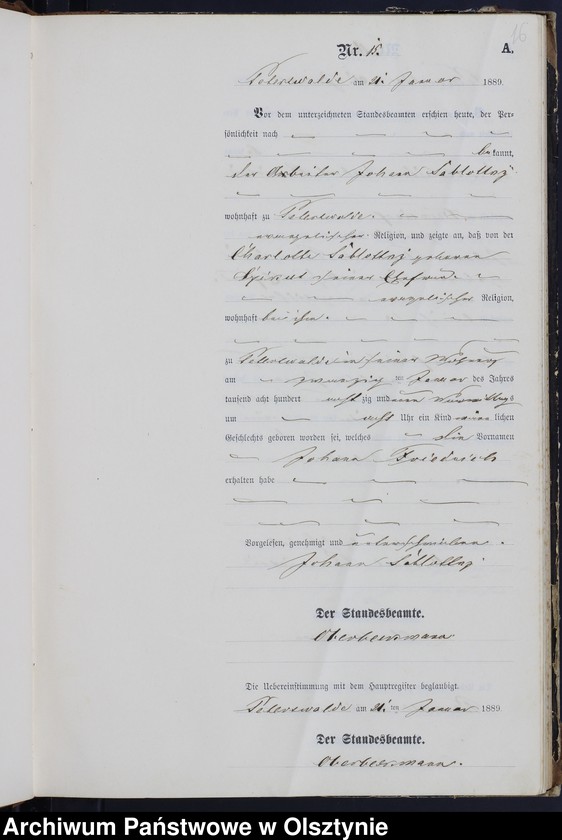 16
Nr. 15. A.
Peterswalde am 21. Januar 1889.
Vor dem unterzeichneten Standesbeamten erschien heute, der Per-
sönlichkeit nach
bekannt,
der Arbeiter Johann Sablottny
wohnhaft zu Peterswalde
evangelischer Religion, und zeigte an, daß von der
Charlotte Sablottny geborenen
seiner Ehefrau
evangelischer Religion,
wohnhaft bei ihm
zu Peterswalde in seiner Wohnung
am zwanzig ten Januar des Jahres
tausend acht hundert achtzig und neun Vormittags
um acht Uhr ein Kind männlichen
Geschlechts geboren worden sei, welches die Vornamen
Johann Friedrich
erhalten habe
Vorgelesen, genehmigt und unterschrieben.
Johann Sablottny
Der Standesbeamte.
Die Uebereinstimmung mit dem Hauptregister beglaubigt.
Peterswalde am 21. ten Januar 1889.
Der Standesbeamte.
Archiwum Państwowe w Olsztynie